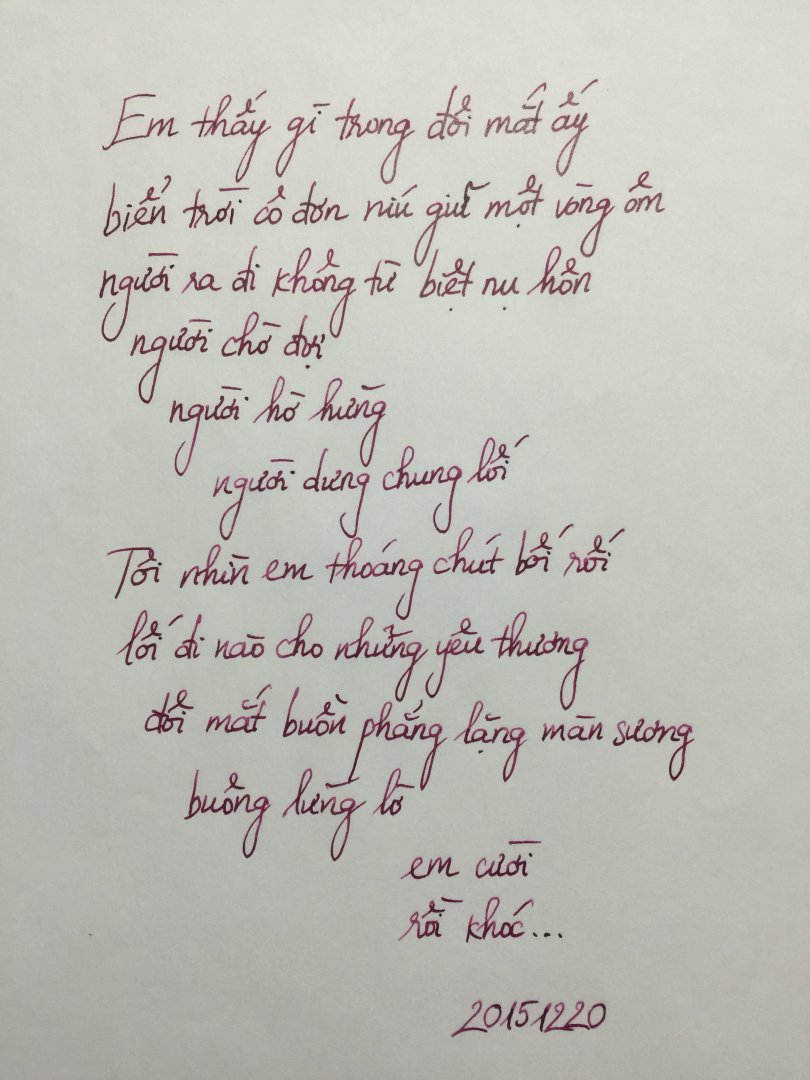 Em thấy gì trong đôi mắt ấy
biển trời cô đơn níu giữ một vòng ôm
người ra đi không từ biệt nụ hôn
người chờ đợi
người hờ hững
người dưng chung lối
Tôi nhìn em thoáng chút bối rối
lối đi nào cho những yêu thương
đôi mắt buồn phẳng lặng màn sương
buông lửng lờ
em cười
rồi khóc...
20151220